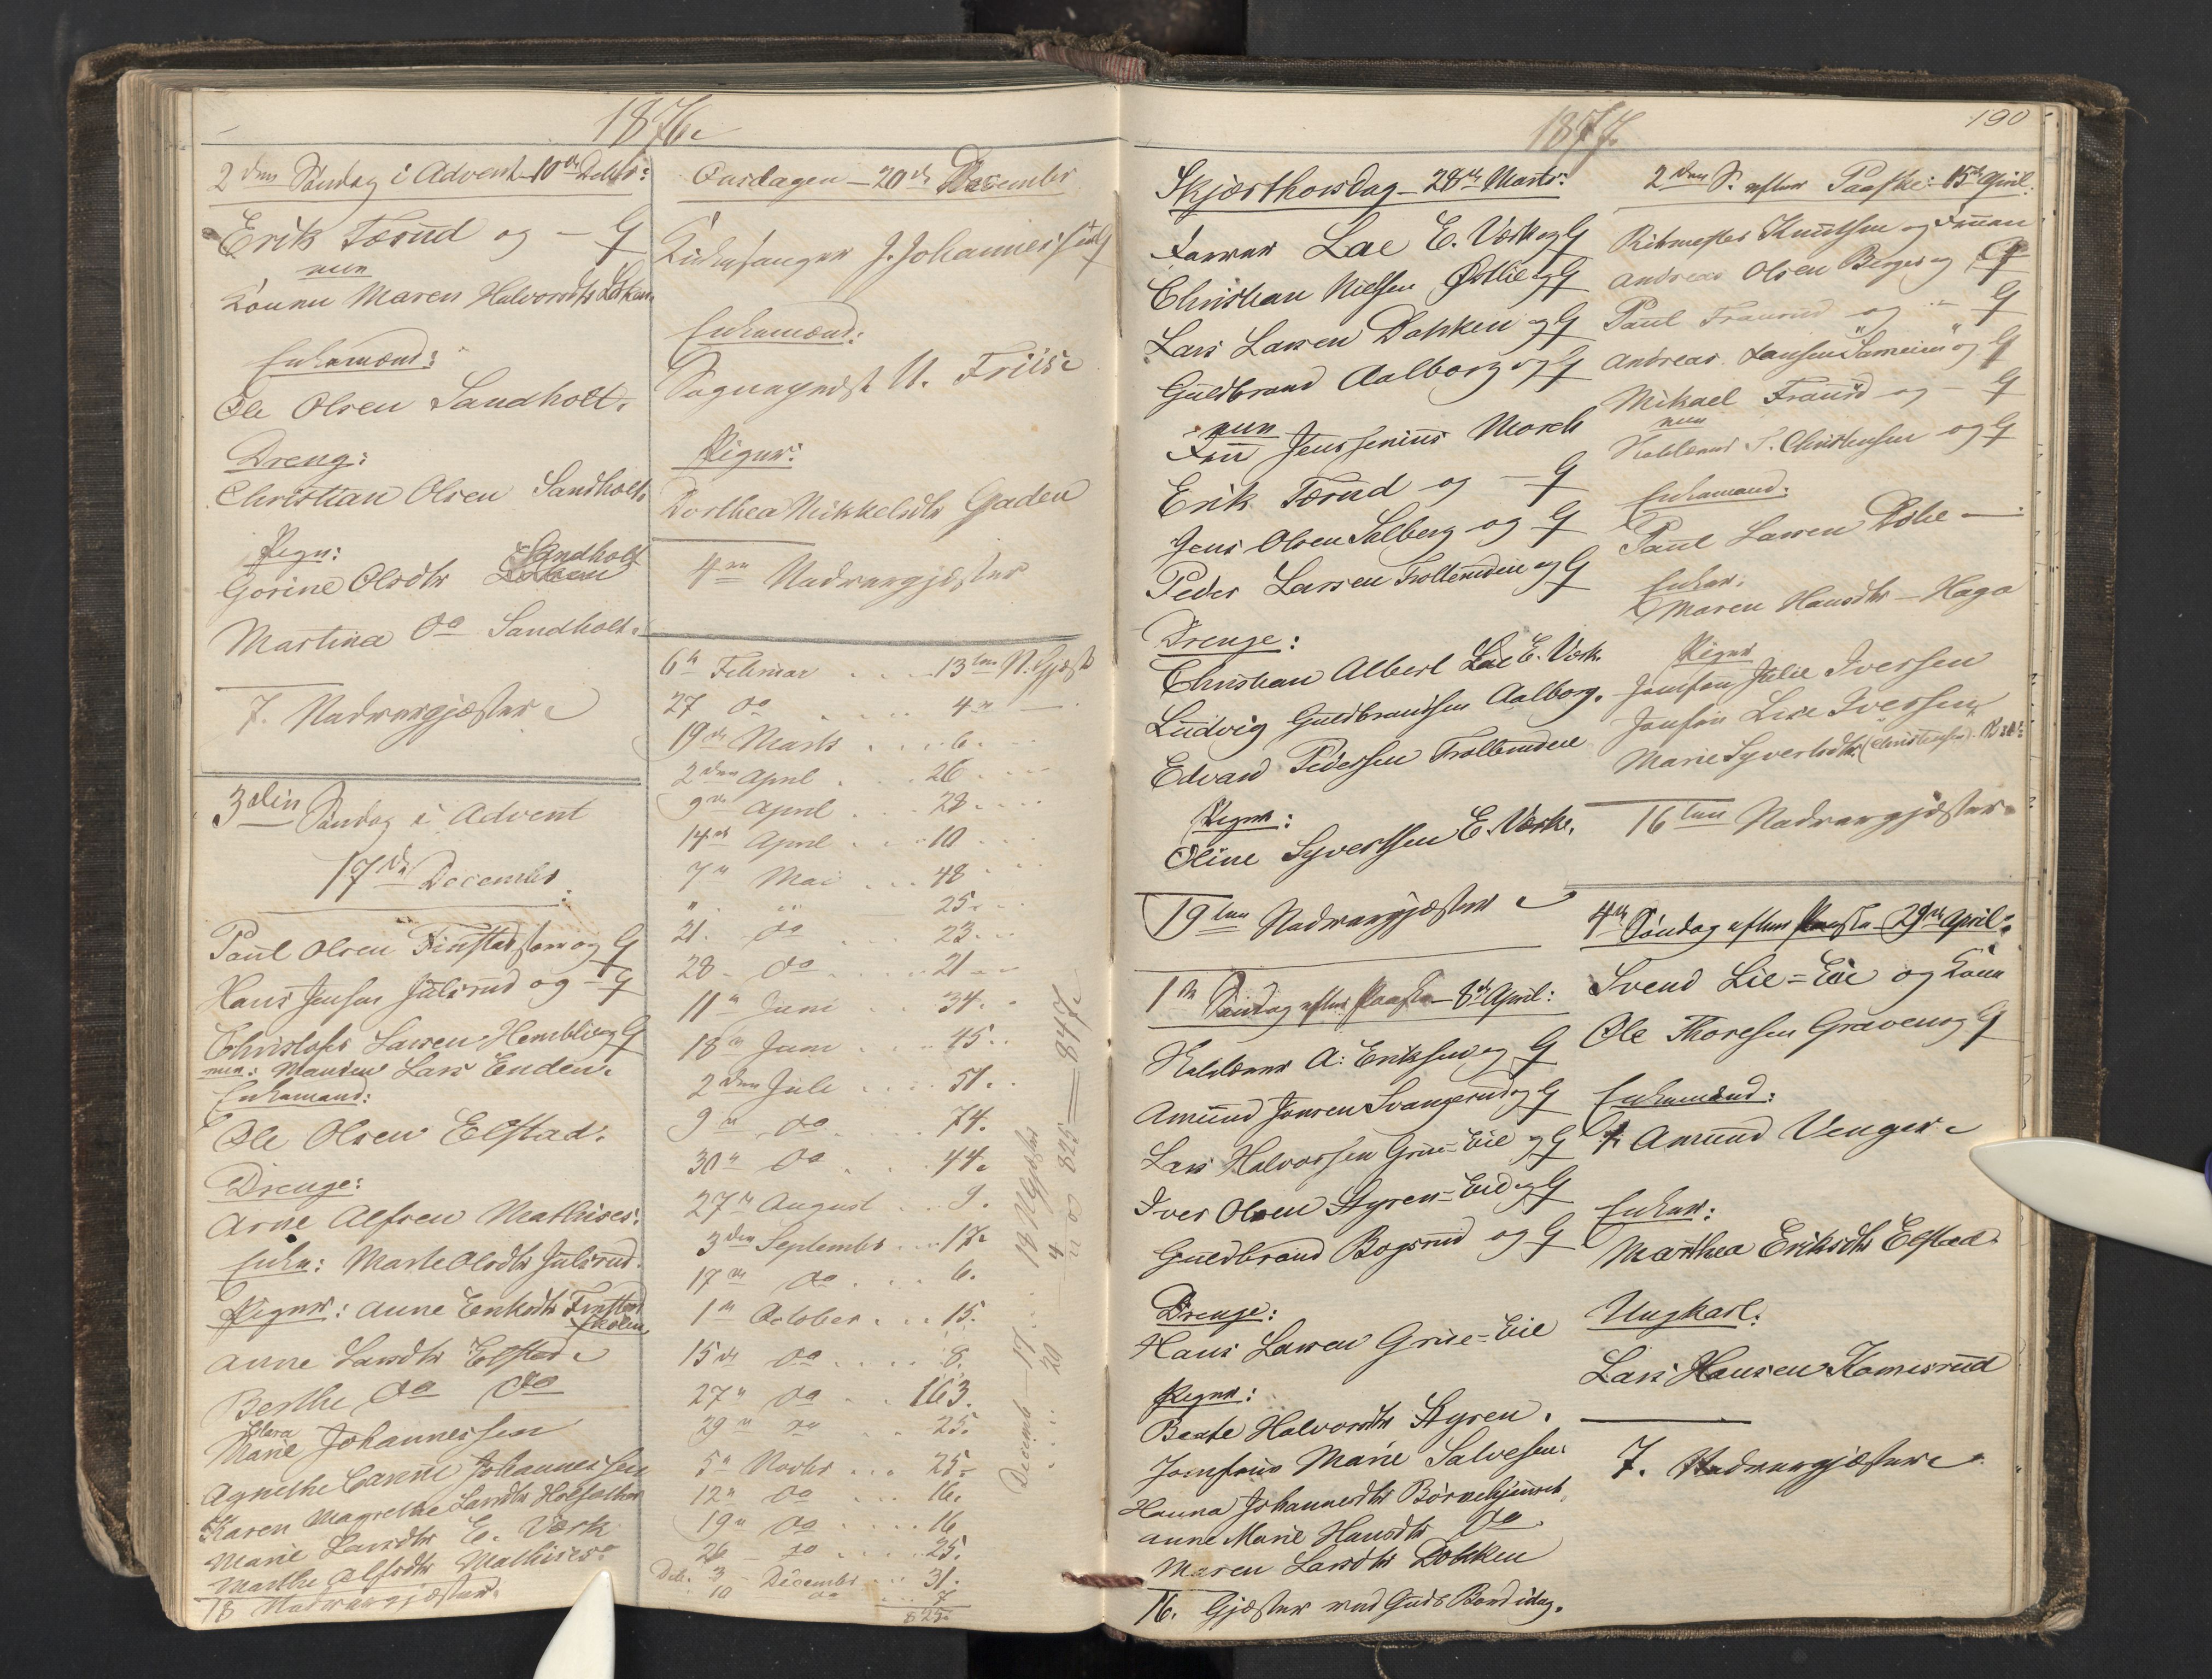 1876.
2den Søndag i Advent 10de Decbr:
Erik Tærud og – G
nem
Konen Maren Halvorsdtr Løken.
Enkemænd:
Ole Olsen Sandholt.
Dreng:
Christian Olsen Sandholt.
Pign:
Sandholt
Gorine Olsdtr
Martina do Sandholt.
7. Nadvergjæster
3die Søndag i Advent
17de December
Paul Olsen og G
Hans Jensen Julsrud og – G
Christofer Larsen Hembli og G
nem: Manden Lars Enden.
Enkemand:
Ole Olsen Elstad.
Drenge:
Arne Alfsen Mathises.
Enke: Marte Olsdtr Julsrud.
Piger: Anne Eriksdtr
Anne Larsdtr Elstad
Berthe do do
Clara
Marie Johannessen
Agnethe Johannessen
Karen Magrethe Larsdtr
Marie Larsdtr E. Værk
Marthe Alfsdtr Mathises.
18 Nadvergjæster.
Onsdagen – 20de December
Kirkesanger J. Johannessen G
Enkemænd:
Sognepræst U. Friis
Piger:
Dorthea Mikkelsdtr Gaden
4re Nadvergjæster
6te Februar . . . 13ten N. Gjæst
27 do . . . 4re —
19de Marts . . . 6.
2den April . . . 26
9de April . . . 28
14de April . . . 10
7de Mai . . . 48
" " 25.
21. do . . . 23.
28 – do . . . 21
11te Juni . . 34.
18de Juni . . . 45.
2den Juli . . . 51.
9de do . . . 74.
30te do . . . 44.
27de August . . 9.
3den September . . . 17.
17de do . . . 6.
1ste October . . . 15.
15de do . . . 8.
27de do . . . 163.
29de do . . . 25.
5te Novbr . . . 25.
12te do . . . 16.
19de do . . . 16
26 do . . . 25.
Deb. 3 – December . . . 31.
10 do . . . 7
825.
Decemb – 17 . . . 18 N Gjæster
20 . . . 4
825 = 847.
1877.
190
Skjærthorsdag – 28de Marts:
Lae E. Værk og G
Christian Nielsen Østlie og G
Lars Larsen Dokken og G
Guldbrand Aalborg og G
nem
Fru Jenssenius Morch
Erik Tærud og – G
Jens Olsen Solberg og G
Peder Larsen Trolleruden og G
Drenge:
Christian Albert Lae E. Værk.
Ludvig Guldbrandsen Aalborg.
Edvard Pedersen Trolleruden
Pigen:
Oline Syvertsen E. Værk.
19ten Nadvergjæster
1ste Søndag efter Paaske – 8de April:
A: Eriksen og G
Amund Jonsen Svangerud og G
Lars Halvorsen Grue-Eie og G
Iver Olsen Styren-Eie og G
Guldbrand Bogsrud og G
Drenge:
Hans Larsen Grue-Eie
Piger:
Beate Halvorsdtr Styren.
Jomfrue Marie Salvesen.
Hanna Johannesdtr Børnehjemmet
Anne Marie Hansdtr do.
Maren Larsdtr Dokken
16. Gjæster ved Guds Bord idag.
2den S. efter Paaske 15de April.
Ritmester Knutsen og Fruen
Andreas Olsen Berger og G
Paul Traurud og – G
Andreas og G
Mikael og G
nem
P. Christensen og G
Enkemand:
Paul Larsen
Enker:
Maren Hansdtr – Haga
Piger
Jomfru Julie Iversen
Jomfru Lise Iversen
Marie Syvertsdtr (Christensen)
16ten Nadvergjæster
4de Søndag efter Paaske 29de April.
Svend Lie-Eie og Kone
Ole Thoresen Graven og G
Enkemænd:
Amund Venger
Enker:
Marthea Eriksdtr Elstad.
Ungkarl.
Lars Hansen Komesrud
7. Nadvergjæster